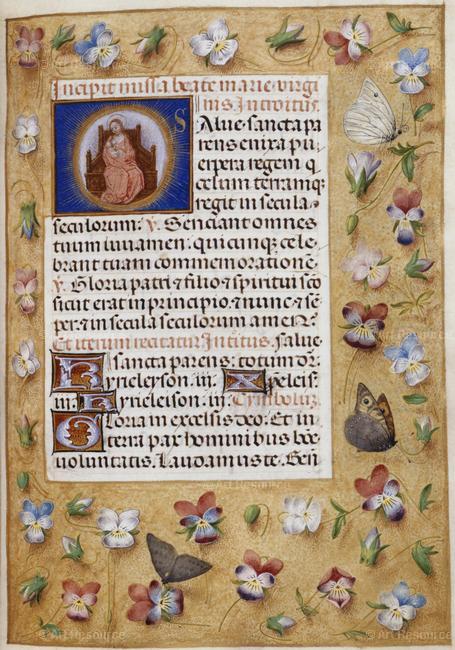 Incipit missa beate marie virgi
nis Introitus.
Salue sancta pa
rens enixa pu
erpera regem q
celum terramq
regit in secula
seculorum: v. Sentiant omnes
tuum iuuamen: quicunq; cele
brant tuam commemoratione.
v. Gloria patri & filio & spiritui sco
sicut erat in principio & nunc & se
per & in secula seculorum amen.
Et iterum recitatur Introitus. Salue
sancta parens: totum
Kyrieleyson. iij. Xpeleiso
iij. Kyrieleison. iij.
Gloria in excelsis deo. Et in
terra pax hominibus bone
voluntatis. Laudamus te. Ben
Art Resource
Art Resource
Art Resource